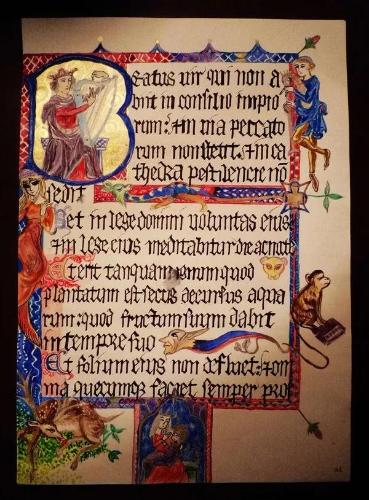 Beatus vir qui non a
biit in consilio impio
rum: & in via peccato
rum non stetit: & in ca
thedra pestilencie nō
sedit
et in lege domini voluntas eius
& in lege eius meditabitur die ac nocte
Et erit tanquam lignum quod
plantatum est secus decursus aqua
rum: quod fructum suum dabit
in tempore suo
Et folium eius non defluet: & om
nia quecumque faciet semper pros